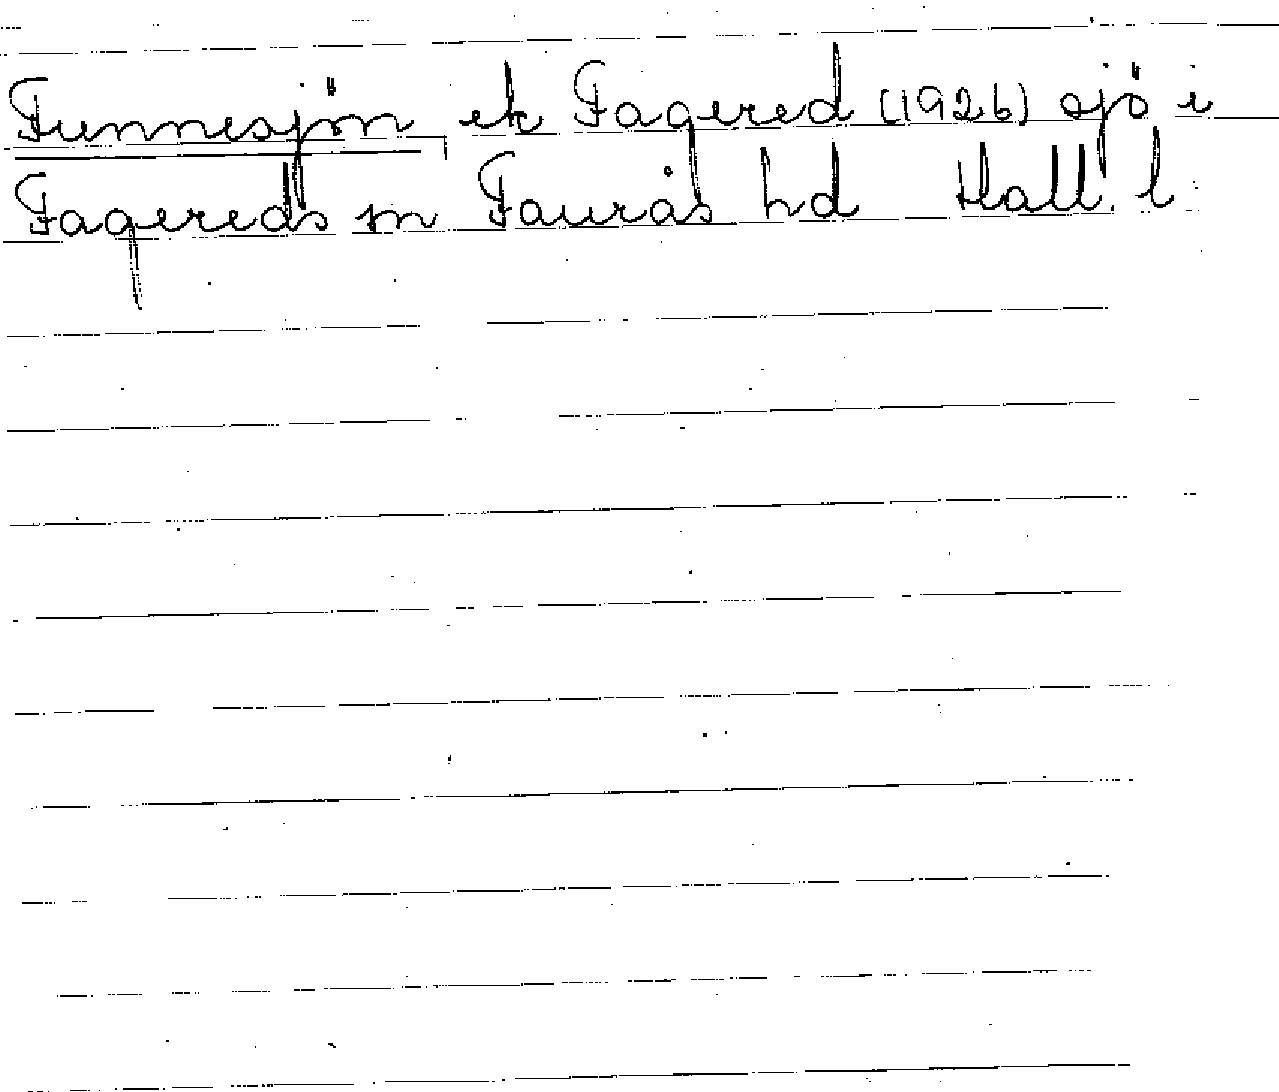 Funnesjön, ek Fagered (1926) sjö i
Fagereds sn Faurås hd Hall. l